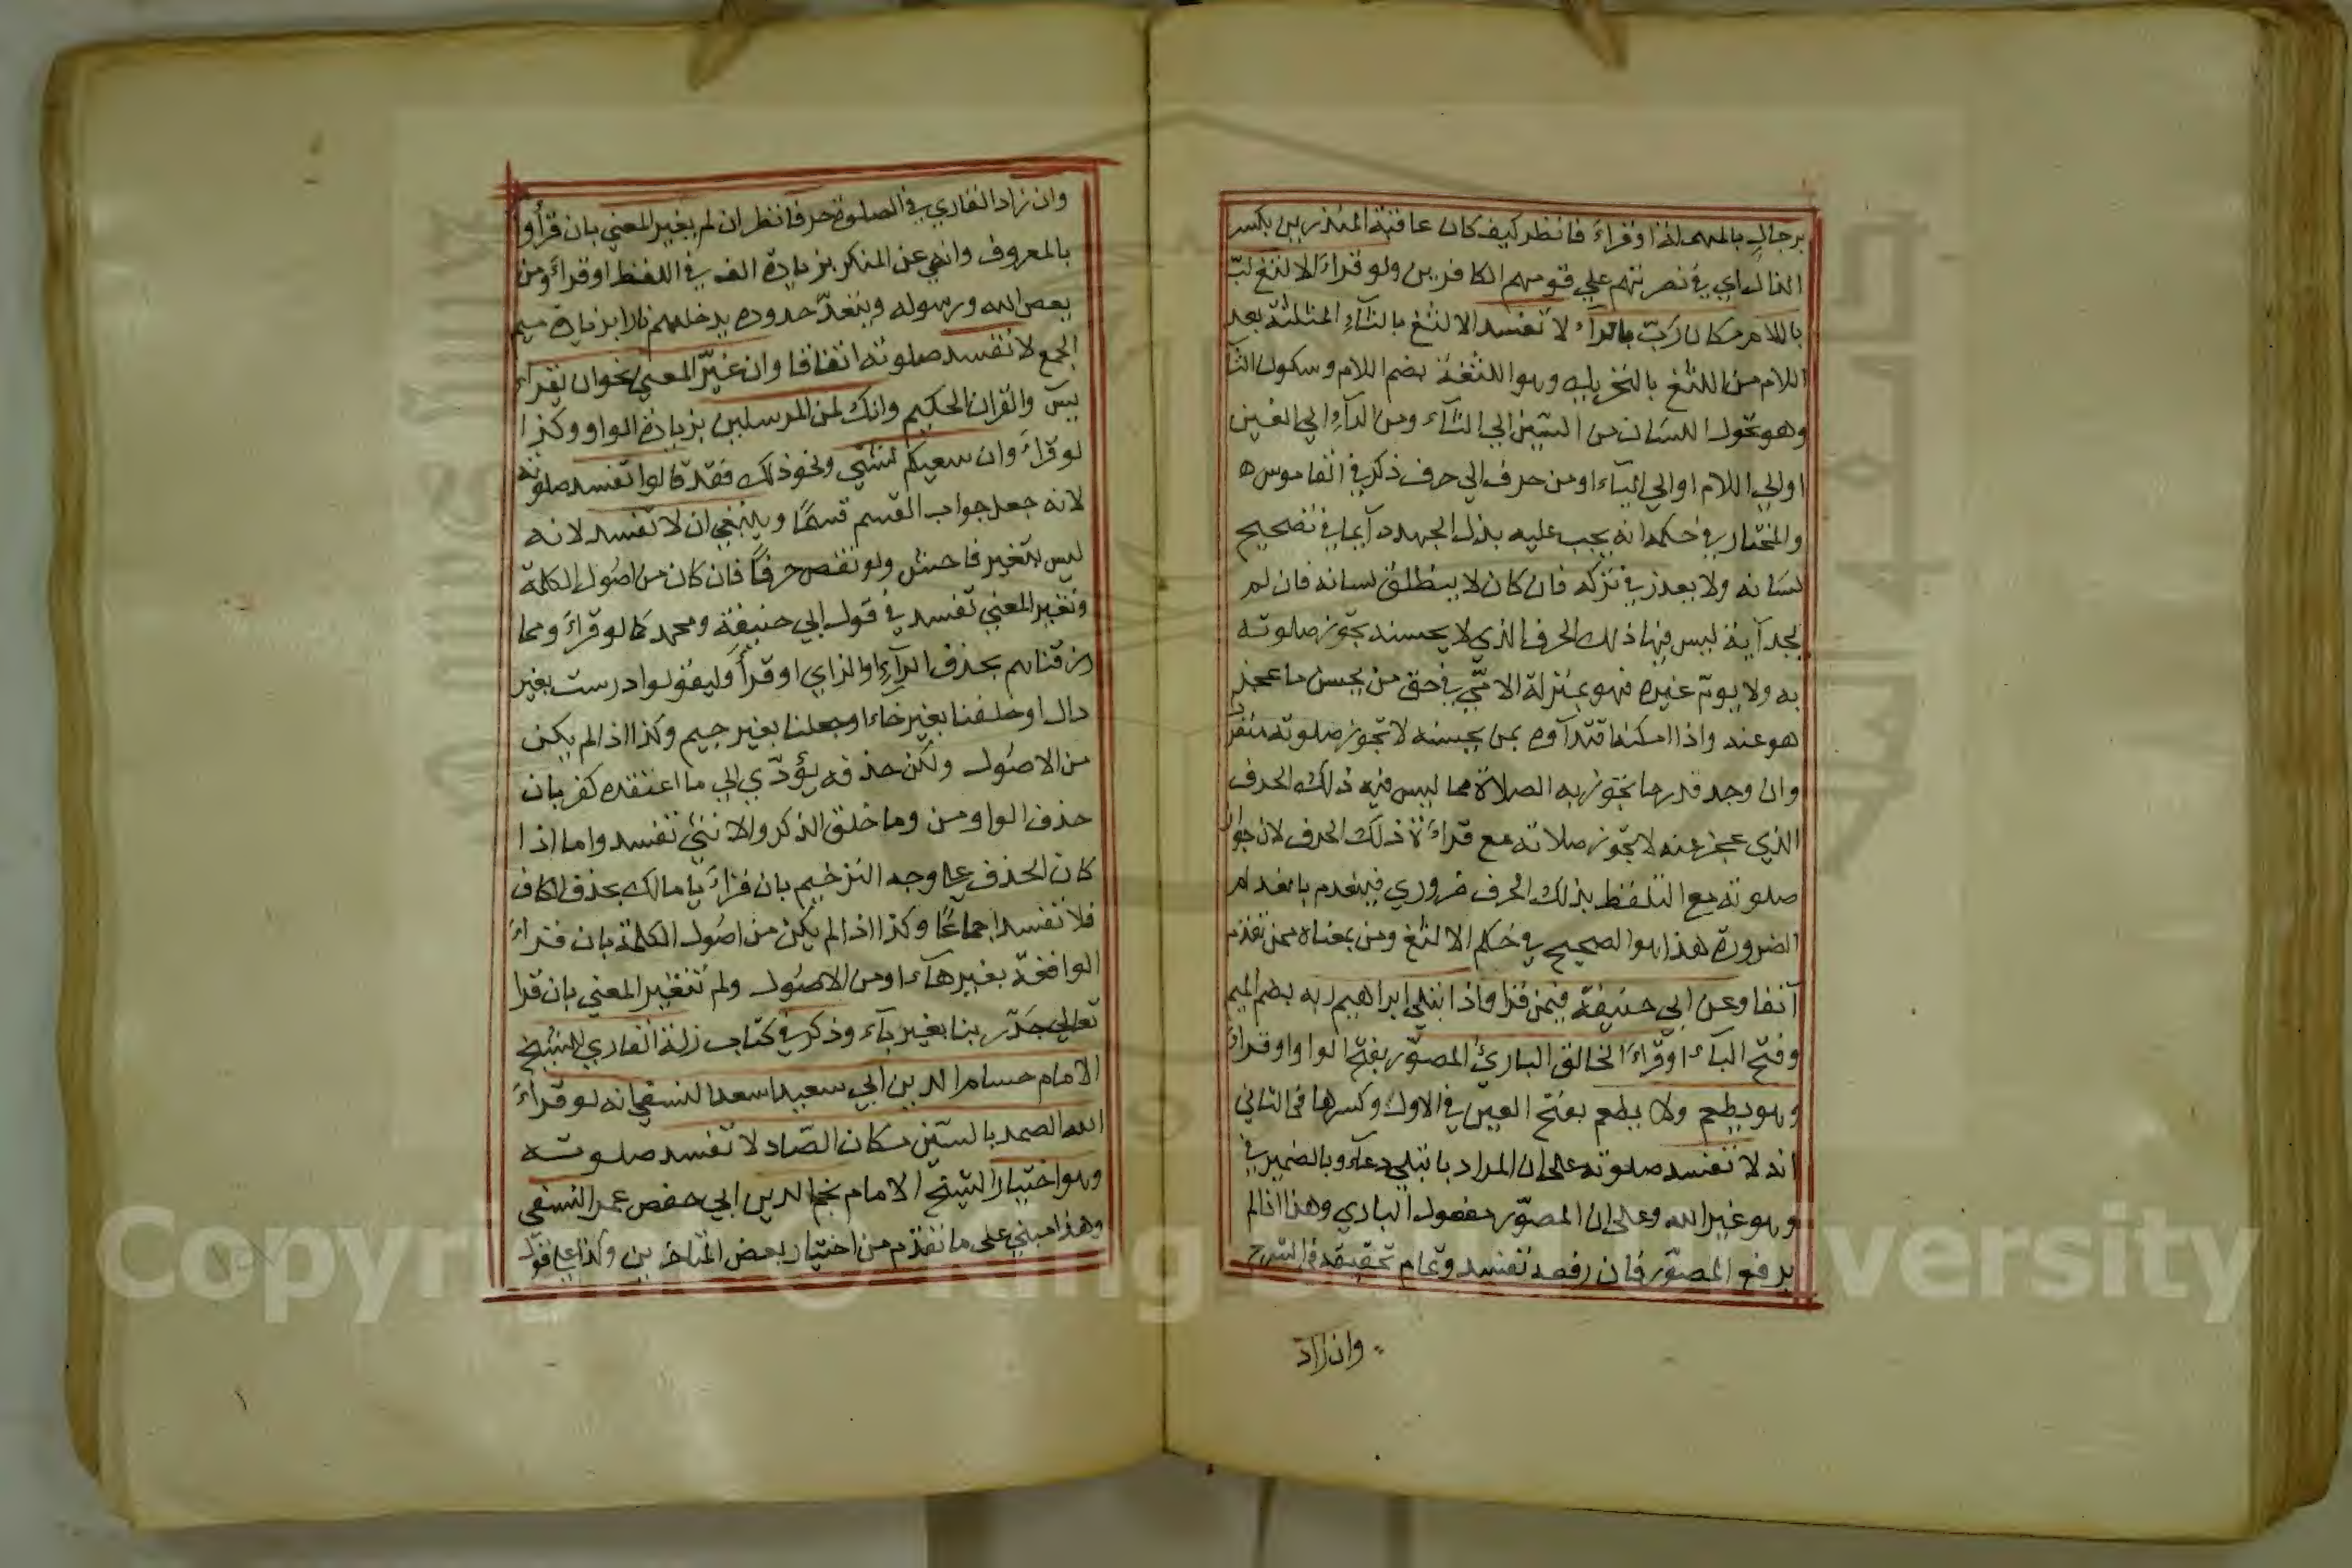 برجال بالمهملة او قراءَ فانظر كيف كان عاقبة المنذرين بكسر
الذال اي في نصرتهم علي قومهم الكافرين ولو قراءَ الالثغ لبّ
باللام مكان رَبّ بالرآء لا تفسد الالثغ بالثآءِ المثلثة بعد
اللام من اللثغ بالتحريك وهو اللثغة بضم اللام وسكون الثآ
وهو تحول اللسَان من السّين الي الثآء ومن الرآءِ الي الغين
او الي اللام او الي اليآء او من حرف الي حرف ذكره في القاموس ه
والمختار في حكمه انه يجب عليه بذل الجهد دآيما في تصحيح
لسَانه ولا يعذر في تركه فان كان لا ينطلق لسانه فان لم
يجد آية ليس فيها ذلك الحرف الذي لا يحسنه تجوز صلوته
به ولا يومّ غيره فهو بمنزلة الامّي في حق من يحسن ما عجز
هو عنه واذا امكنه اقتدآوه بمن يحسنه لا تجوز صلوته منفردا
وان وجد قدر ما تجوز به الصلاة مما ليس فيه ذلك الحرف
الذي عجز عنه لا تجوز صلاته مع قراءَة ذلك الحرف لان جواز
صلوته مع التلفظ بذلك الحرف ضروري فينعدم بانعدام
الضرورة هذا هو الصحيح في حُكم الالثغ ومن بمعناه ممن تقدم
آنفا وعن ابي حنيفة فيمن قرا واذا ابتلي ابراهيم ربه بضم الميم
وفتح البآء او قراءَ الخالق الباريُ المصوّر بفتح الواو او قراءَ
وهو يطعم ولا يطعم بفتح العين في الاول وكسرها في الثاني
انه لا تفسد صلوته علي ان المراد بابتلي دعآء وبالضمير في
وهو غير الله وعلي ان المصوّر مفعول الباري وهذا اذا لم
يرفع المصوّر فان رفعه تفسد وتمام تحقيقه في الشرح
وان زاد
وان زاد القاري في الصلوة حرفا نظر ان لم يغير المعني بان قرأ وأ
بالمعروف وانهي عن المنكر بزيادة الف في اللفظ او قراءَ ومن
يعص الله ورسوله ويتعدّ حدوده يدخلهم نارا بزيادة ميم
الجمع لا تفسد صلوته اتفاقا وان غيّر المعني نحو ان يقراءَ
يسَ والقران الحكيم وانك لمن المرسلين بزيادة الواو وكذا
لو قراءَ وان سعيكم لشتي ونحو ذلك فقد قالوا تفسد صلوته
لانه جعل جواب القسم قسمًا وينبغي ان لا تفسد لانه
ليس بتغير فاحش ولو نقص حرفًا فان كان من اصُول الكلمة
وتغير المعني تفسد في قول ابي حنيفة ومحمد كما لو قراءَ ومما
رزقناهم بحذف الرآءِ او الزاي او قرأَ وليقولوا درست بغير
دال او خلقنا بغير خاء او جعلنا بغير جيم وكذا اذا لم يكن
من الاصُول ولكن حذفه يؤدّي الي ما اعتقده كفر بان
حذف الواو من وما خلق الذكر والانثي تفسد واما اذا
كان الحذف علي وجه الترخيم بان قراءَ يا مالك بحذف الكاف
فلا تفسد اجماعًا وكذا اذا لم يكن من اصُول الكلمة بان قراءَ
الواقعة بغير هآء او من الاصُول ولم تتغير المعني بان قرا
تعالي جَدّ ربنا بغير يآء وذكر في كتاب زلة القاري للشيخ
الامام حسام الدين ابي سعيد اسعد النسفي انه لو قراءَ
الله الصمد بالسّين مكان الصّاد لا تفسد صلوته
وهو اختيار الشيخ الامام نجم الدين ابي حفص عمر النسفي
وهذا مبني علي ما تقدم من اختيار بعض المتاخرين وكذا علي قول